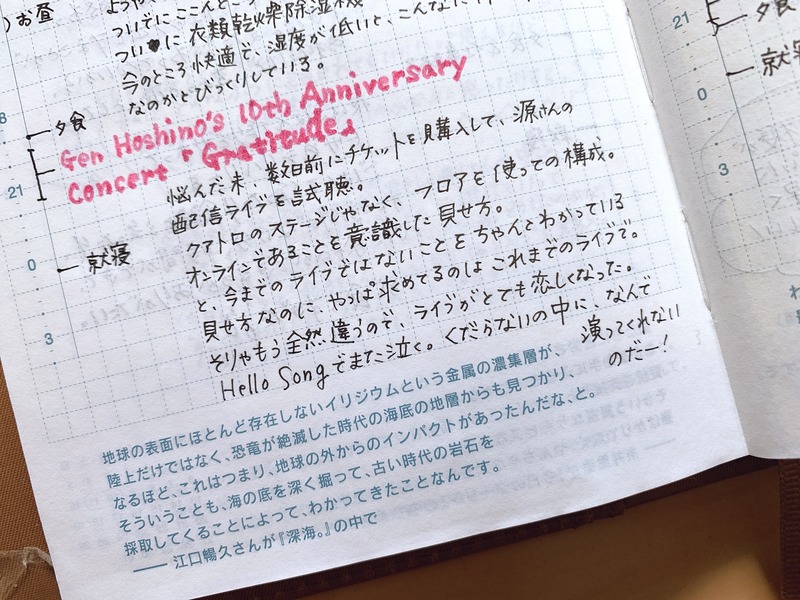 お昼
ついでにここんとこ
ついに衣類乾燥除湿機
今のところ快適で、湿度が低いと、こんなに
なのかとびっくりしている。
夕食
Gen Hoshino's 10th Anniversary
21
Concert『Gratitude』
悩んだ末、数日前にチケットを購入して、源さんの
配信ライブを試聴。
クアトロのステージじゃなく、フロアを使っての構成。
0
就寝
オンラインであることを意識した見せ方。
と、今までのライブではないことをちゃんとわかっている
3
見せ方なのに、やっぱ求めてるのはこれまでのライブで。
そりゃもう全然違うので、ライブがとても恋しくなった。
Hello Songでまた泣く。くだらないの中に、なんで
演ってくれない
のだー!
地球の表面にほとんど存在しないイリジウムという金属の濃集層が、
陸上だけではなく、恐竜が絶滅した時代の海底の地層からも見つかり、
なるほど、これはつまり、地球の外からのインパクトがあったんだな、と。
そういうことも、海の底を深く掘って、古い時代の岩石を
採取してくることによって、わかってきたことなんです。
―― 江口暢久さんが『深海。』の中で
21
夕食
0
就寝
3